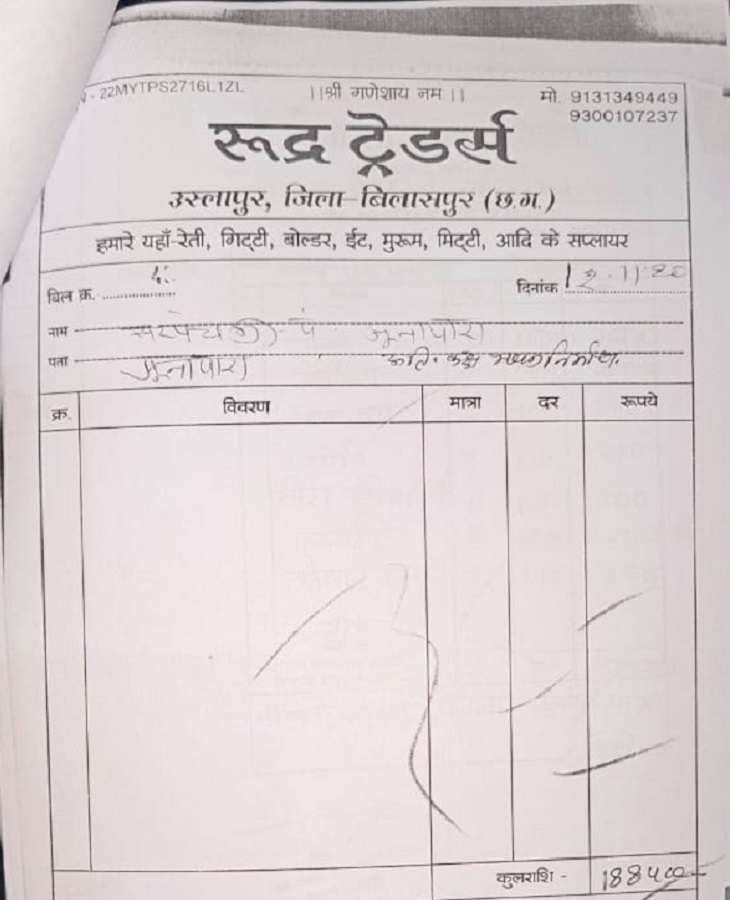 - 22MYTPS2716L1ZL ||श्री गणेशाय नम || मो. 9131349449
9300107237
रूद्र ट्रेडर्स
उस्लापुर, जिला-बिलासपुर (छ.ग.)
हमारे यहाँ-रेती, गिट्टी, बोल्डर, ईट, मुरूम, मिट्टी, आदि के सप्लायर
बिल क्र. 4. दिनांक
नाम
पता
क्र. विवरण मात्रा दर रूपये
कुलराशि - 188400